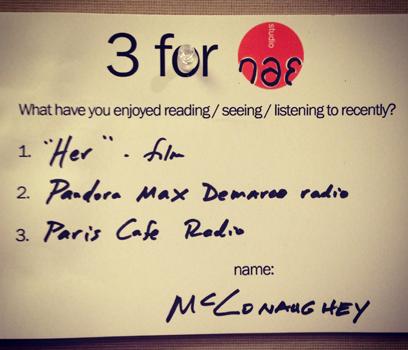 3 for
studio 360
What have you enjoyed reading / seeing / listening to recently?
1. "Her" - film
2. Pandora Max Demarco radio
3. Paris Cafe Radio
name:
McCONAUGHEY